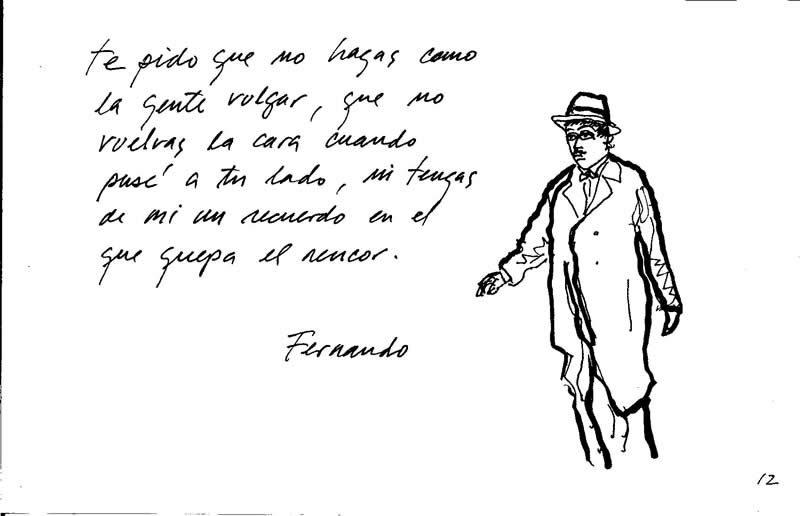 te pido que no hagas como
la gente vulgar, que no
vuelvas la cara cuando
pasé a tu lado, ni tengas
de mi un recuerdo en el
que quepa el rencor.
Fernando
12